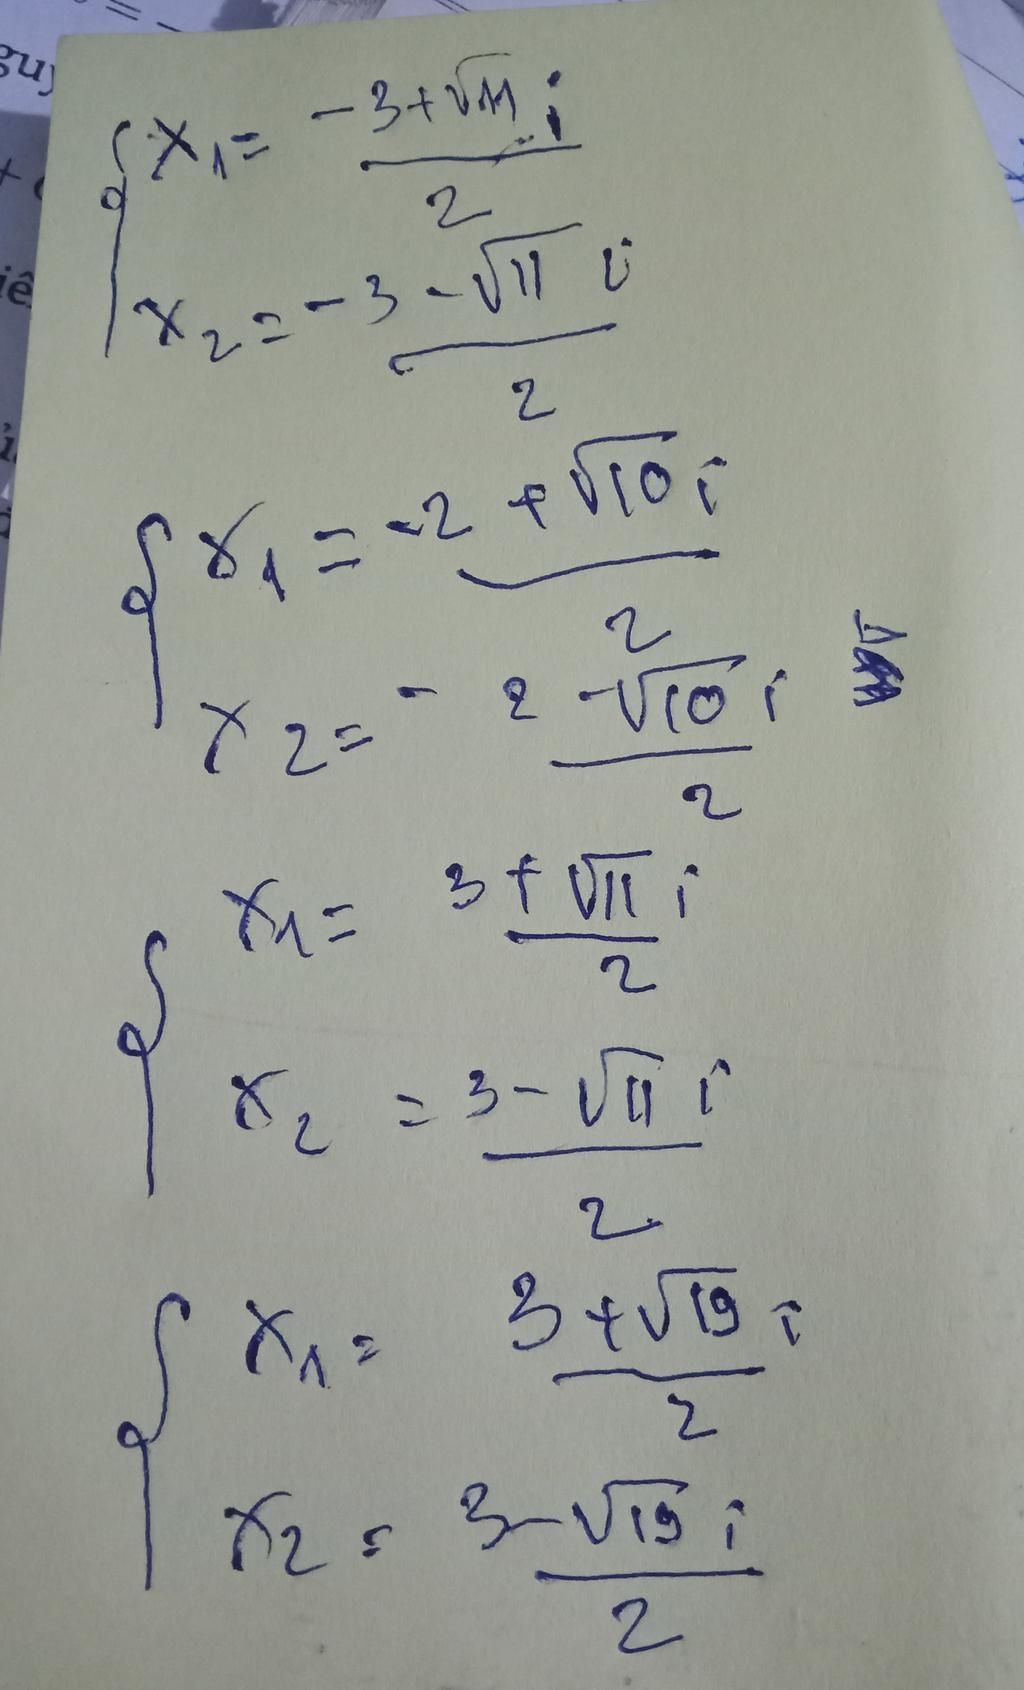 guy
x₁ = (-3+√11 i)/2
x₂ = (-3-√11 i)/2
x₁ = (-2+√10 i)/2
x₂ = (-2-√10 i)/2
x₁ = (3+√11 i)/2
x₂ = (3-√11 i)/2
x₁ = (3+√19 i)/2
x₂ = (3-√19 i)/2